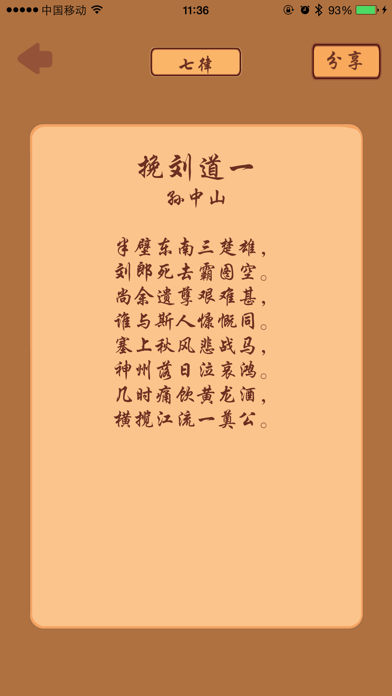 中国移动 11:36 93%
七律 分享
挽刘道一
孙中山
半壁东南三楚雄,
刘郎死去霸图空。
尚余遗孽艰难甚,
谁与斯人慷慨同。
塞上秋风悲战马,
神州落日泣哀鸿。
几时痛饮黄龙酒,
横揽江流一奠公。